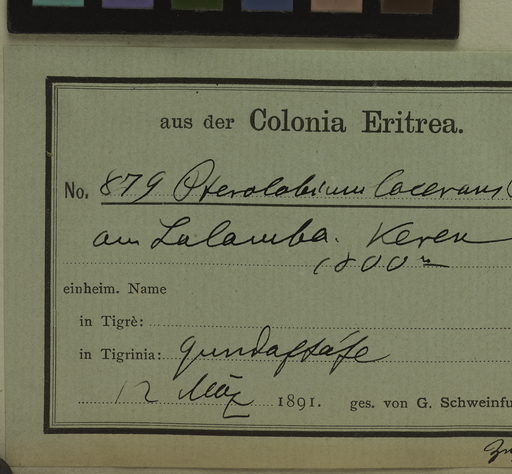 aus der Colonia Eritrea.
No. 879 Pterolobium lacerans
am Lalamba. Keren
1800 m
einheim. Name
in Tigrè:
in Tigrinia: gundaftáfe
12 März 1891. ges. von G. Schweinfu